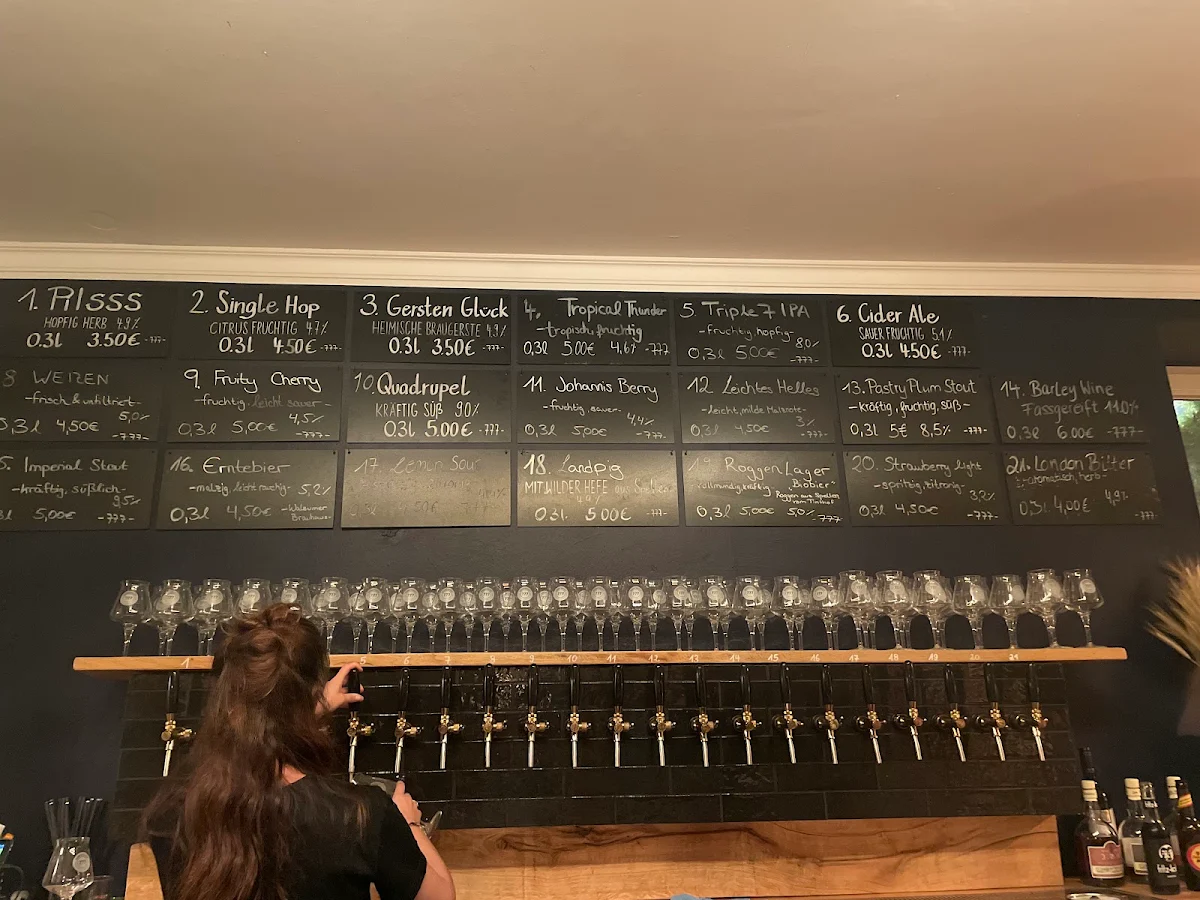 1. PILSSS
HOPFIG HERB 4.9%
0.3l 3.50€ -777-
2. Single Hop
CITRUS FRUCHTIG 4.7%
0.3l 4.50€ -777-
3. Gersten Glück
HEIMISCHE BRAUGERSTE 4.9%
0.3l 3.50€ -777-
4. Tropical Thunder
-tropisch, fruchtig
0,3l 5.00€ 4,6% -777
5. Triple 7 IPA
-fruchtig, hopfig-
8.0%
0,3l 5.00€ -777-
6. Cider Ale
SAUER FRUCHTIG 5.1%
0.3l 4.50€ -777-
8 WEIZEN
-frisch & unfiltriert-
5,0%
0,3l 4,50€ -777-
9. Fruity Cherry
-fruchtig, leicht sauer-
4,5%
0,3l 5,00€ -777-
10. Quadrupel
KRÄFTIG SÜß 9.0%
0.3l 5.00€ -777-
11. Johannis Berry
-fruchtig, sauer-
4,4%
0,3l 5,00€ -777-
12. Leichtes Helles
-leicht, milde Malznote-
3%
0,3l 4,50€ -777-
13. Pastry Plum Stout
-kräftig, fruchtig, süß-
0,3l 5€ 8,5% -777-
14. Barley Wine
Fassgereift 11.0%
0,3l 6.00€ -777-
5. Imperial Stout
-kräftig, süßlich-
9,5%
5,00€ -777-
16. Erntebier
-malzig, leicht rauchig- 5,2%
0,3l 4,50€
Brauhaus-
17. Lemon Sour
18. Landpig
MIT WILDER HEFE aus
0.3l 5.00€ -777-
19. Roggen Lager
-vollmundig, kräftig- Biobier
Roggen aus
0,3l 5,00€ 5,0% -777-
20. Strawberry light
-spritzig, zitronig-
3,2%
0,3l 4,50€ -777-
21. London Bitter
-aromatisch, herb-
4,9%
0,3l 4,00€ -777-
1 5 6 7 8 9 10 11 12 13 14 15 16 17 18 19 20 21